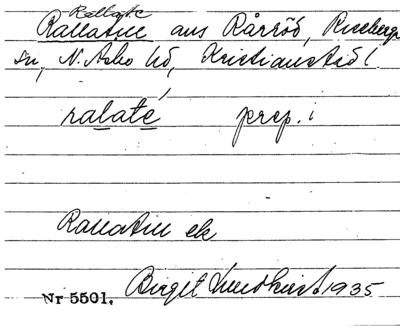 Rallate
Rallatie aus Rårröd, Riseberga
sn, N. Åsbo hd, Kristianst. l.
ralaté prep. i
Rallatie ek
Nr 5501. Birgit Lundkvist 1935